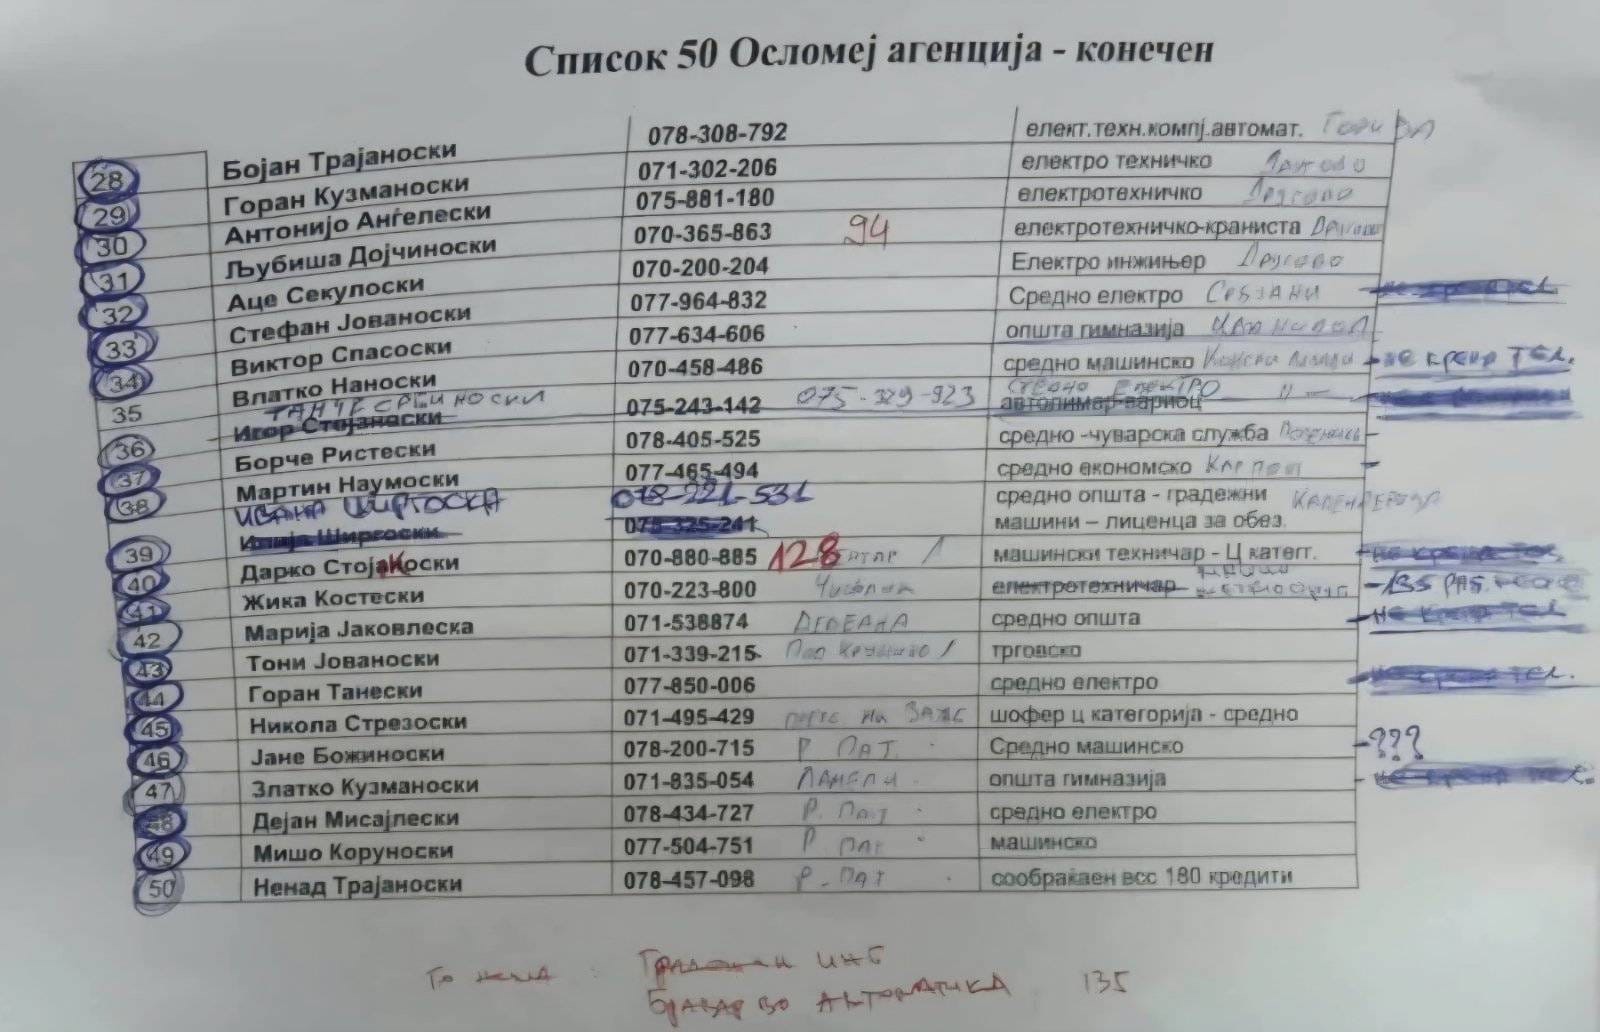 Список 50 Осломеј агенција - конечен
28 Бојан Трајаноски 078-308-792 елект.техн.компј.автомат.
29 Горан Кузманоски 071-302-206 електро техничко
30 Антонијо Анѓелески 075-881-180 електротехничко Другово
31 Љубиша Дојчиноски 070-365-863 94 електротехничко-краниста
32 Аце Секулоски 070-200-204 Електро инжињер Другово
33 Стефан Јованоски 077-964-832 Средно електро Србјани
34 Виктор Спасоски 077-634-606 општа гимназија
35 Влатко Наноски 070-458-486 средно машинско - не крена тел.
075-329-923 средно електро
36 Игор Стојаноски 075-243-142 автолимар-вариоц
37 Борче Ристески 078-405-525 средно -чуварска служба
38 Мартин Наумоски 077-465-494 средно економско
Ивана Ширгоска 078-221-531 средно општа - градежни
39 Илија Ширгоски 075-325-241 машини – лиценца за обез.
40 Дарко Стојакоски 070-880-885 128 машински техничар - Ц катего.
41 Жика Костески 070-223-800 електротехничар -135
42 Марија Јаковлеска 071-538874 средно општа
43 Тони Јованоски 071-339-215 трговско
44 Горан Танески 077-850-006 средно електро
45 Никола Стрезоски 071-495-429 на шофер ц категорија - средно
46 Јане Божиноски 078-200-715 Р. ПАТ. Средно машинско -???
47 Златко Кузманоски 071-835-054 Ламели општа гимназија
48 Дејан Мисајлески 078-434-727 Р. ПАТ средно електро
49 Мишо Коруноски 077-504-751 Р. ПАТ машинско
50 Ненад Трајаноски 078-457-098 Р. ПАТ сообраќаен всс 180 кредити
инг
во автоматика 135